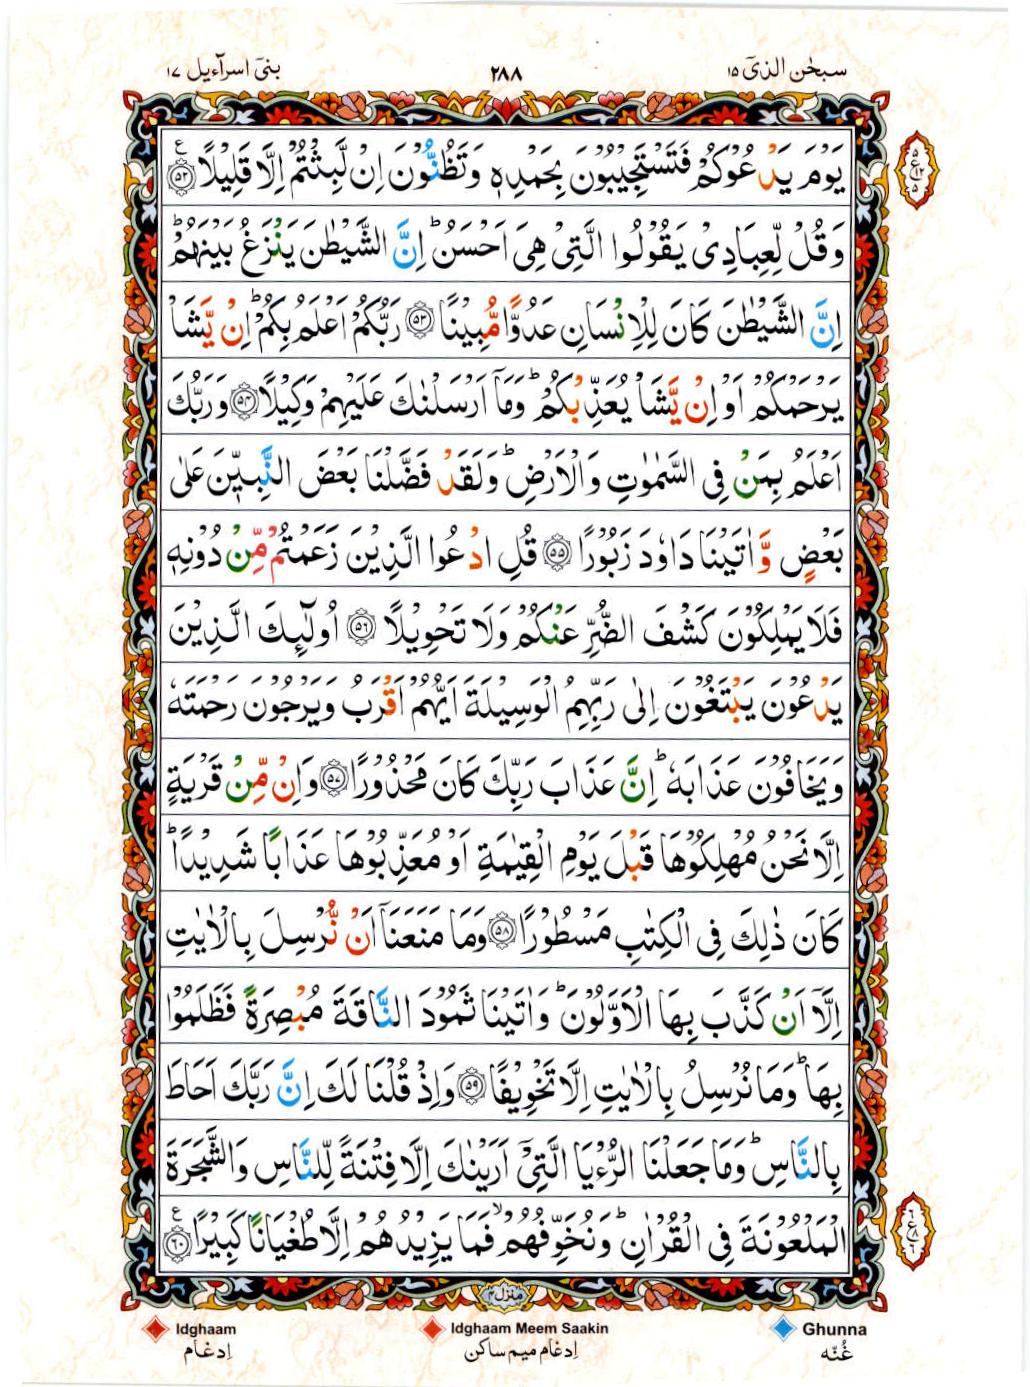 سبحٰن الذیٓ ۱۵
۲۸۸
بنیٓ اسرآءیل ۱۷
یَوْمَ یَدْعُوْكُمْ فَتَسْتَجِیْبُوْنَ بِحَمْدِهٖ وَ تَظُنُّوْنَ اِنْ لَّبِثْتُمْ اِلَّا قَلِیْلًا ﴿۵۲﴾ ع
وَ قُلْ لِّعِبَادِیْ یَقُوْلُوا الَّتِیْ هِیَ اَحْسَنُ ؕ اِنَّ الشَّیْطٰنَ یَنْزَغُ بَیْنَهُمْ ؕ
اِنَّ الشَّیْطٰنَ كَانَ لِلْاِنْسَانِ عَدُوًّا مُّبِیْنًا ﴿۵۳﴾ رَبُّكُمْ اَعْلَمُ بِكُمْ ؕ اِنْ یَّشَاْ
یَرْحَمْكُمْ اَوْ اِنْ یَّشَاْ یُعَذِّبْكُمْ ؕ وَ مَاۤ اَرْسَلْنٰكَ عَلَیْهِمْ وَكِیْلًا ﴿۵۴﴾ وَ رَبُّكَ
اَعْلَمُ بِمَنْ فِی السَّمٰوٰتِ وَ الْاَرْضِ ؕ وَ لَقَدْ فَضَّلْنَا بَعْضَ النَّبِیّٖنَ عَلٰی
بَعْضٍ وَّ اٰتَیْنَا دَاوٗدَ زَبُوْرًا ﴿۵۵﴾ قُلِ ادْعُوا الَّذِیْنَ زَعَمْتُمْ مِّنْ دُوْنِهٖ
فَلَا یَمْلِكُوْنَ كَشْفَ الضُّرِّ عَنْكُمْ وَ لَا تَحْوِیْلًا ﴿۵۶﴾ اُولٰٓئِكَ الَّذِیْنَ
یَدْعُوْنَ یَبْتَغُوْنَ اِلٰی رَبِّهِمُ الْوَسِیْلَةَ اَیُّهُمْ اَقْرَبُ وَ یَرْجُوْنَ رَحْمَتَهٗ
وَ یَخَافُوْنَ عَذَابَهٗ ؕ اِنَّ عَذَابَ رَبِّكَ كَانَ مَحْذُوْرًا ﴿۵۷﴾ وَ اِنْ مِّنْ قَرْیَةٍ
اِلَّا نَحْنُ مُهْلِكُوْهَا قَبْلَ یَوْمِ الْقِیٰمَةِ اَوْ مُعَذِّبُوْهَا عَذَابًا شَدِیْدًا ؕ
كَانَ ذٰلِكَ فِی الْكِتٰبِ مَسْطُوْرًا ﴿۵۸﴾ وَ مَا مَنَعَنَاۤ اَنْ نُّرْسِلَ بِالْاٰیٰتِ
اِلَّاۤ اَنْ كَذَّبَ بِهَا الْاَوَّلُوْنَ ؕ وَ اٰتَیْنَا ثَمُوْدَ النَّاقَةَ مُبْصِرَةً فَظَلَمُوْا
بِهَا ؕ وَ مَا نُرْسِلُ بِالْاٰیٰتِ اِلَّا تَخْوِیْفًا ﴿۵۹﴾ وَ اِذْ قُلْنَا لَكَ اِنَّ رَبَّكَ اَحَاطَ
بِالنَّاسِ ؕ وَ مَا جَعَلْنَا الرُّءْیَا الَّتِیْۤ اَرَیْنٰكَ اِلَّا فِتْنَةً لِّلنَّاسِ وَ الشَّجَرَةَ
الْمَلْعُوْنَةَ فِی الْقُرْاٰنِ ؕ وَ نُخَوِّفُهُمْ ۙ فَمَا یَزِیْدُهُمْ اِلَّا طُغْیَانًا كَبِیْرًا ﴿۶۰﴾ ع
منزل ۴
Idghaam
Idghaam Meem Saakin
Ghunna
اِدغام
اِدغام میم ساکن
غُنّه